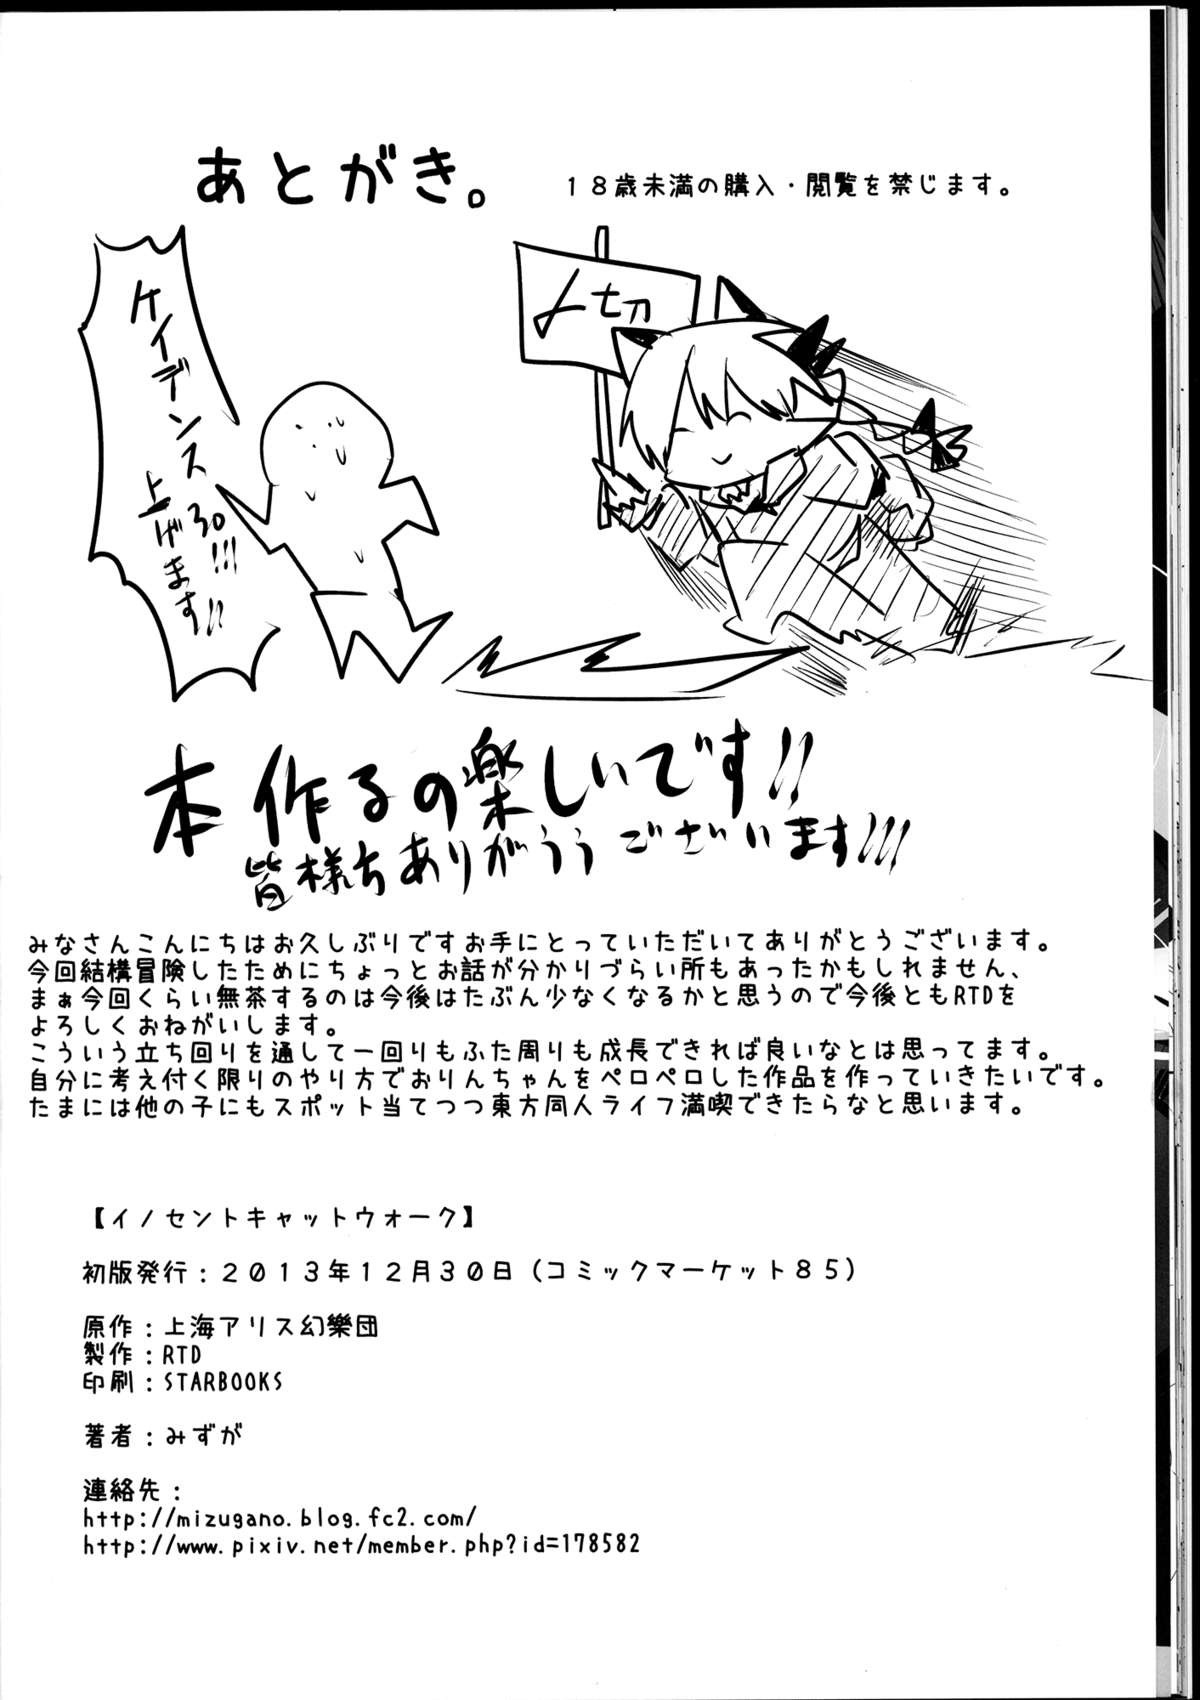 あとがき。
18歳未満の購入・閲覧を禁じます。
ケイデンス
30!!!
上げます!!
〆切
本作るの楽しいです!!
皆様ちありがうう ございます!!!
みなさんこんにちはお久しぶりですお手にとっていただいてありがとうございます。
今回結構冒険したためにちょっとお話が分かりづらい所もあったかもしれません、
まぁ今回くらい無茶するのは今後はたぶん少なくなるかと思うので今後ともRTDを
よろしくおねがいします。
こういう立ち回りを通して一回りもふた周りも成長できれば良いなとは思ってます。
自分に考え付く限りのやり方でおりんちゃんをペロペロした作品を作っていきたいです。
たまには他の子にもスポット当てつつ東方同人ライフ満喫できたらなと思います。
【イノセントキャットウォーク】
初版発行：2013年12月30日（コミックマーケット85）
原作：上海アリス幻樂団
製作：RTD
印刷：STARBOOKS
著者：みずが
連絡先：
http://mizugano.blog.fc2.com/
http://www.pixiv.net/member.php?id=178582